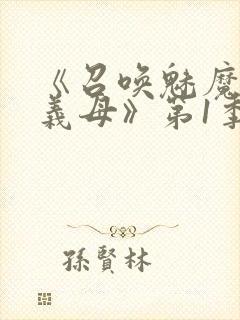 《召唤魅魔
義母》第1季
孫賢林